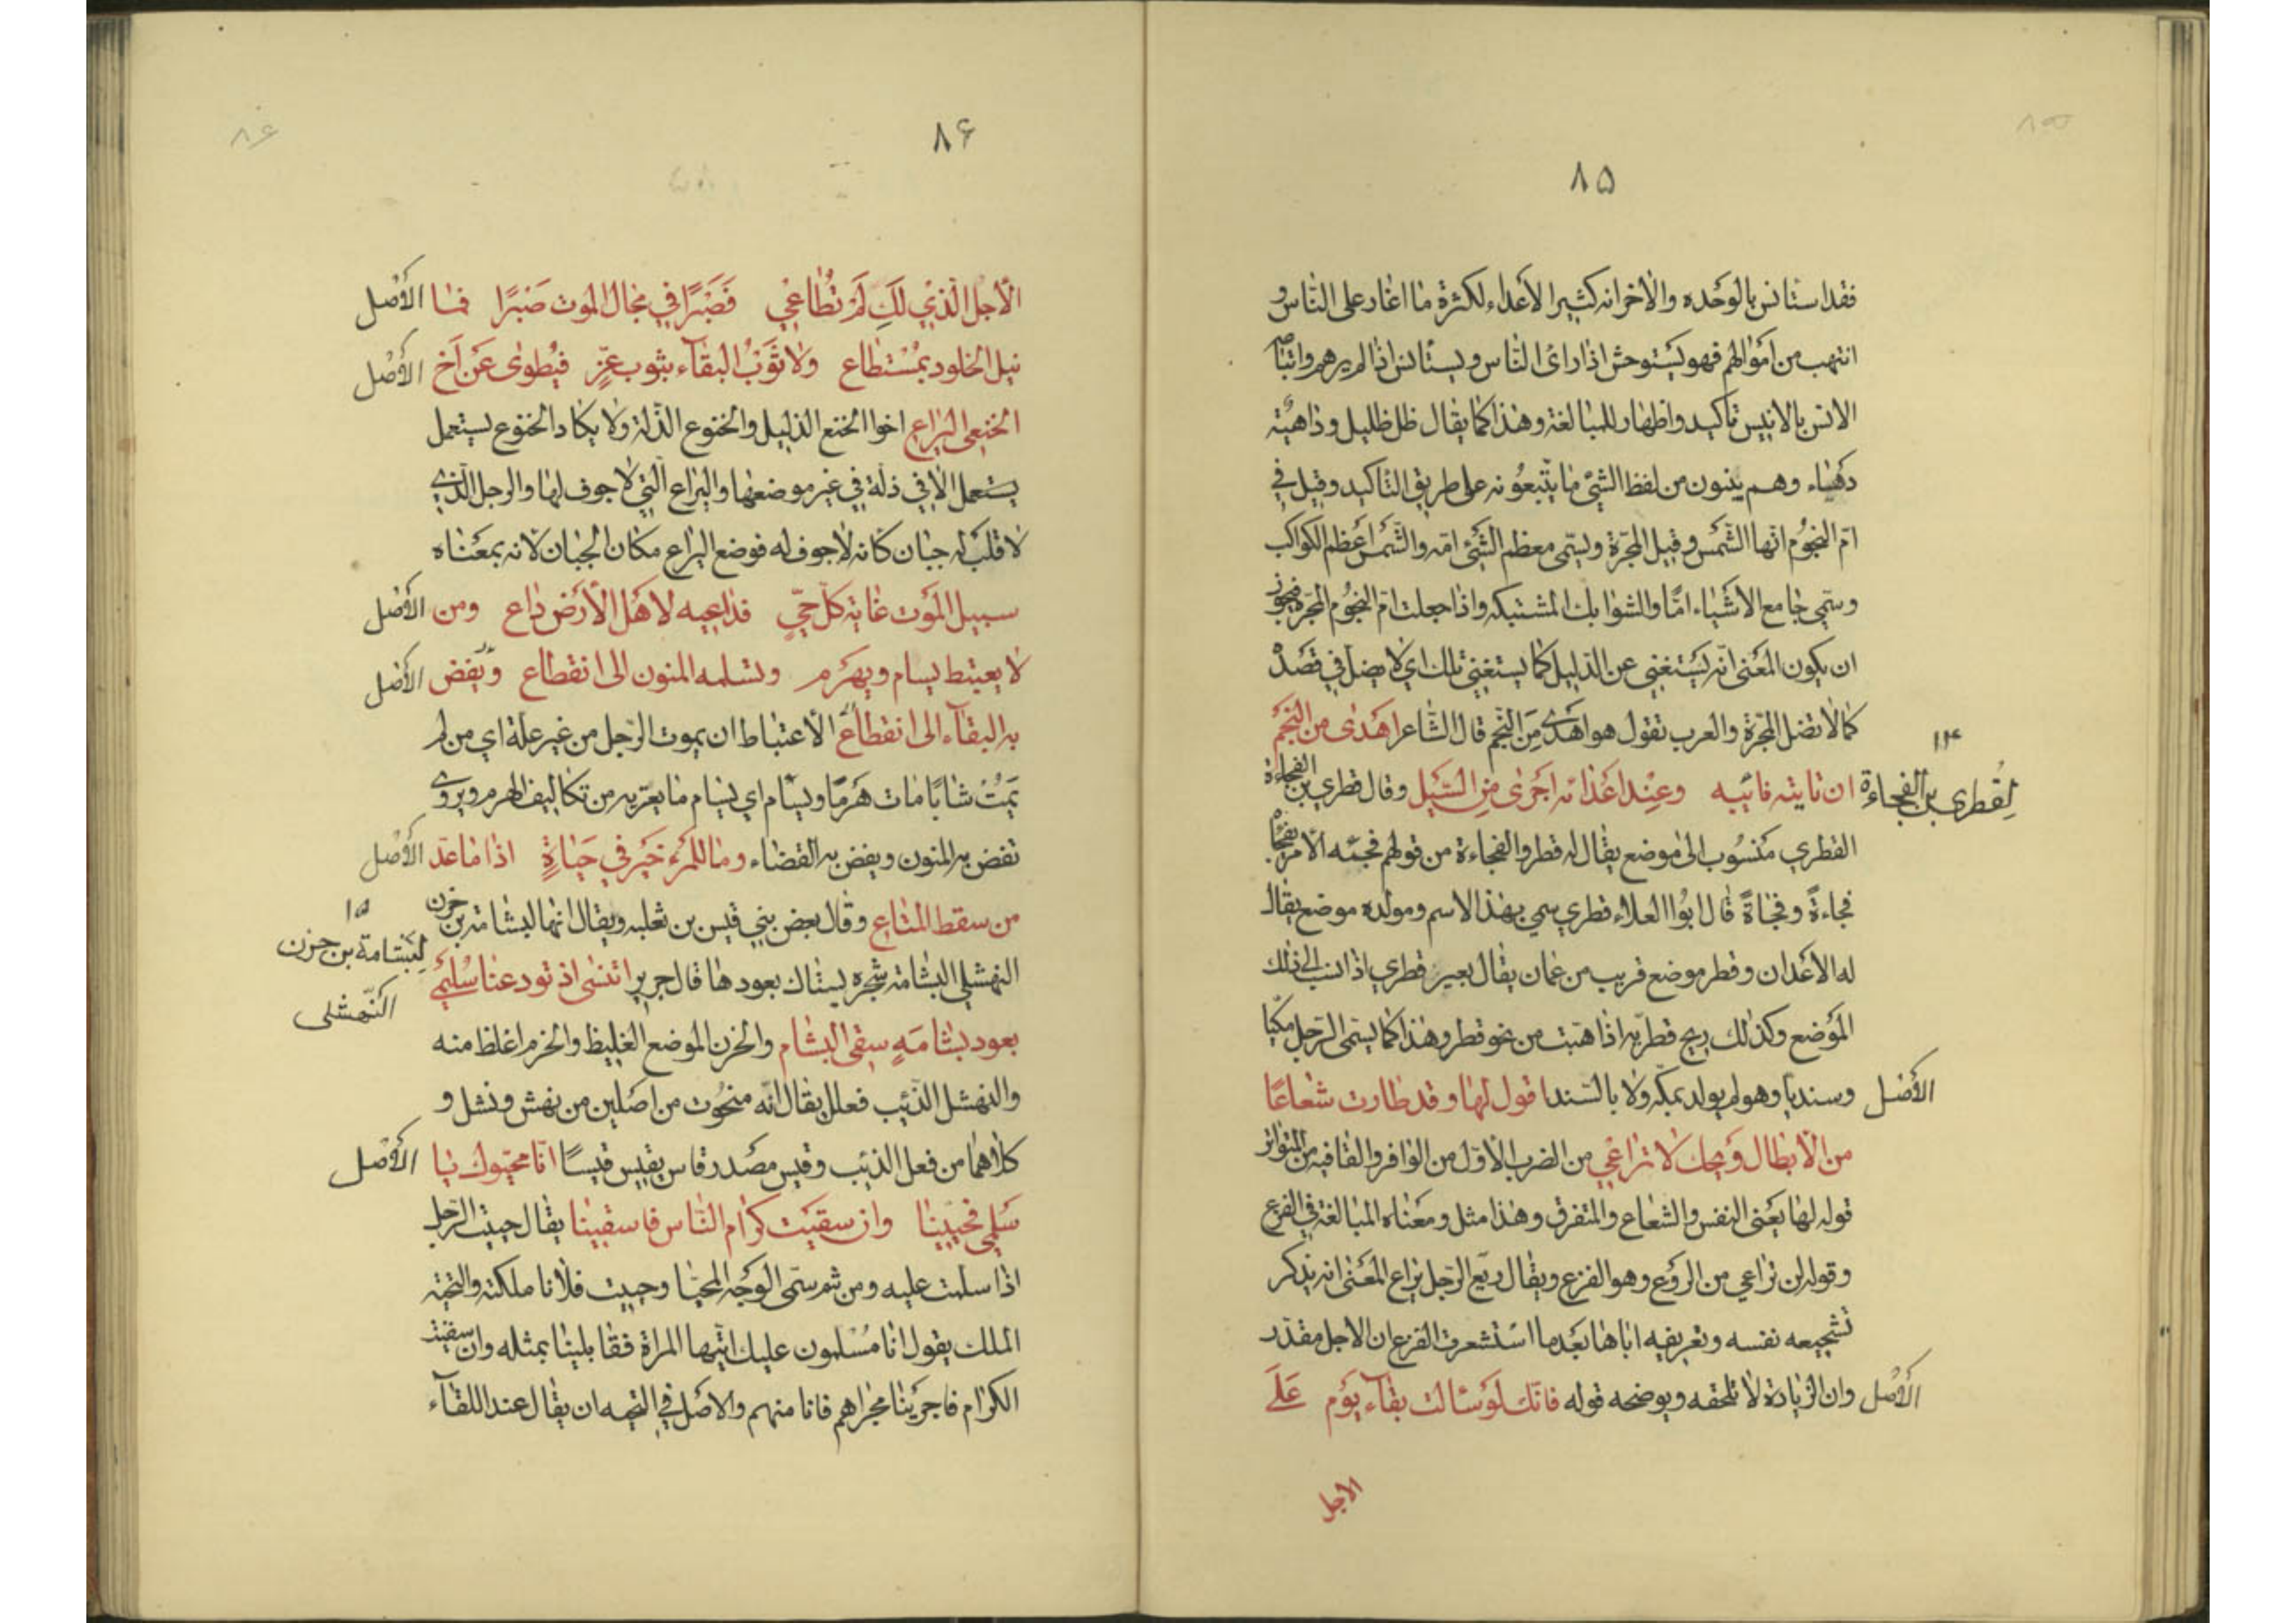 ٨٥
فقد استانس بالوحده والاخر انه كثير الأعداء لكثرة ما اغار على الناس و
انتهب من اموالهم فهو يستوحش اذا رائ الناس ويستأنس اذا لم يرهم واتباع
الانس بالانيس تاكيد واظهار للمبالغة وهذا كما يقال ظل ظليل وداهية
دهياء وهم يبنون من لفظ الشئ ما يتبعونه على طريق التاكيد وقيل في
ام النجوم انها الشمس وقيل المجرة ويسمى معظم الشئ امه والشمس اعظم الكواكب
وسمي جامع الاشياء امّا والشوابك المشتبكه واذا جعلت ام النجوم المجرة فيجوز
ان يكون المعنى انه يستغني عن الدليل كما يستغني تلك اي لا يضل في قصد
كما لا تضل المجرة والعرب تقول هو اهدى من النجم قال الشاعر اهدى من النجم
١٤
لقطري بن الفجاءة
ان نابته نائبه وعند اعدائه اجرى من السيل وقال قطري بن الفجاءة
القطري منسوب الى موضع يقال له قطر والفجاءة من قولهم فجئه الأمر يفجأ
فجاءة وفجأة قال ابوا العلاء قطري سمي بهذا الاسم ومولده موضع يقال
له الأعدان وقطر موضع قريب من عمان يقال بعير قطري اذا نسب الى ذلك
الموضع وكذلك ريح قطرية اذا هبت من نحو قطر وهذا كما يسمى الرجل مكيا
الأصل وسنديا وهو لم يولد بمكه ولا بالسند اقول لها وقد طارت شعاعًا
من الأبطال ويحك لا تراعي من الضرب الأول من الوافر والقافيه من المتواتر
قوله لها يعنى النفس والشعاع والمتفرق وهذا مثل ومعناه المبالغة في الفزع
وقوله لن تراعي من الروع وهو الفزع ويقال ريع الرجل يراع المعنى انه يذكر
تشجيعه نفسه وتعريفيه اياها بعد ما استشعرت الفزع ان الاجل مقدر
الأصل وان الزيادة لا تلحقه ويوضحه قوله فانك لو سئالت بقاء يوم على
الاجل
٨۶
الأجل الذي لك لم تطاعي فصبرًا في مجال الموت صبرًا فما الأصل
نيل الخلود بمستطاع ولا ثوب البقاء بثوب عزّ فيطوى عن اخ الأصل
الخنعي اليراع اخوا الخنع الذليل والخنوع الذلة ولا يكاد الخنوع يستعمل
يستعمل الا في ذلة في غير موضعها واليراع التي لا جوف لها والرجل الذي
لا قلب له جبان كانه لا جوف له فوضع اليراع مكان الجبان لانه بمعناه
سبيل الموت غاية كل حيّ فداعيه لاهل الأرض داع ومن الأصل
لا يعتبط يسام ويهرم وتسلمه المنون الى انقطاع ويفض الأصل
به البقاء الى انقطاع الأعتباط ان يموت الرجل من غير علة اي من لم
يمت شابًا مات هرمًا ويسأم اي يسام ما يعتريه من تكاليف الهرم ويروى
تفض به المنون ويفض به القضاء وما للمرء خير في حياة اذا ما عد الأصل
من سقط المتاع وقال بعض بني قيس بن ثعلبه ويقال انها لبشامة بن حزن
١٥
لبشامة بن حزن
النهشلي
النهشلي البشامة شجره يستاك بعودها قال جرير اتنسى اذ تودعنا سليمى
بعود بشامة سقى البشام والحزن الموضع الغليظ والحزم اغلظ منه
والنهشل الذئيب فعلل يقال انه منحوت من اصلين من نهش ونشل و
كلاهما من فعل الذئيب وقيس مصدر قاس يقيس قيسًا انا محيوك يا الأصل
سلمى فحيينا وان سقيت كرام الناس فاسقينا يقال حييت الرجل
اذا سلمت عليه ومن ثم سمى الوجه المحيا وحييت فلانا ملكته والتحية
الملك يقول انا مسلمون عليك ايتها المراة فقابلينا بمثله وان سقيت
الكرام فاجرينا مجراهم فانا منهم والاصل في التحيه ان يقال عند اللقاء